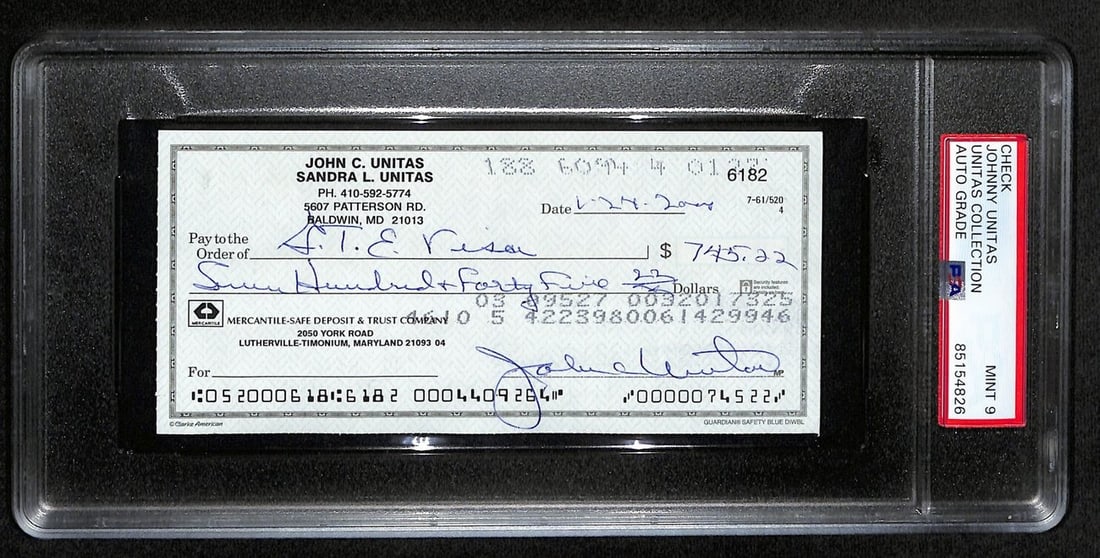 JOHN C. UNITAS
SANDRA L. UNITAS
PH. 410-592-5774
5607 PATTERSON RD.
BALDWIN, MD 21013
188 6094 4
6182
Date 1-24-2000
7-61/520
4
Pay to the
Order of G.T.E. Visa $ 745.22
Seven Hundred & Forty Five 22 Dollars
Security features are included.
03 89527 0032017325
4610 5 4223980061429946
MERCANTILE
MERCANTILE-SAFE DEPOSIT & TRUST COMPANY
2050 YORK ROAD
LUTHERVILLE-TIMONIUM, MARYLAND 21093 04
For
John C Unitas
MP
⑆052000618⑆6182 0004409264⑈ ⑈0000074522⑈
© Clarke American
GUARDIAN® SAFETY BLUE DIWBL
CHECK
JOHNNY UNITAS
UNITAS COLLECTION
AUTO GRADE
MINT 9
PSA
85154826